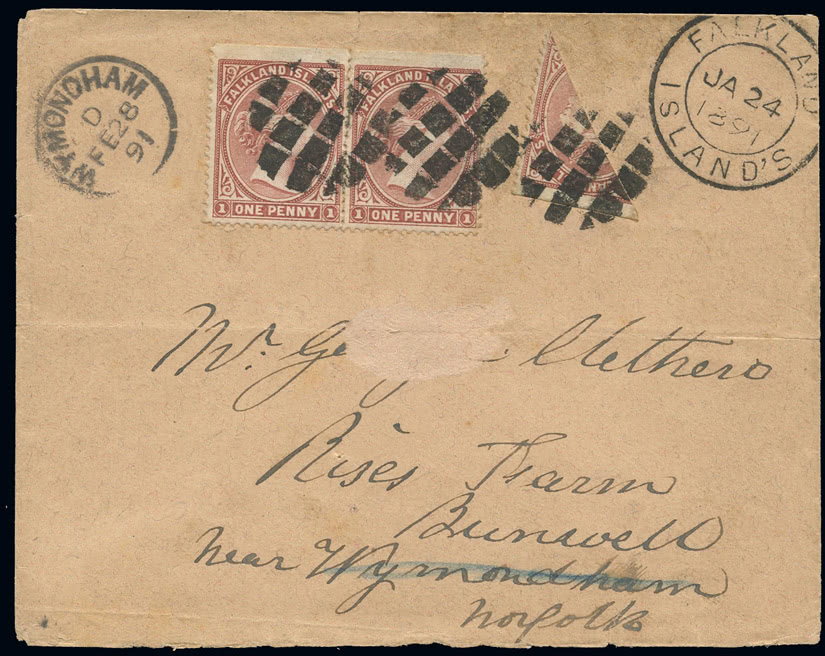 WYMONDHAM
D
FE 28
91
FALKLAND ISLANDS
1 ONE PENNY 1
FALKLAND
1 ONE PENNY 1
FALKLAND ISLAND'S
JA 24
1891
Mr. Methero
Rises Farm
Bunwell
Near Wymondham
Norfolk